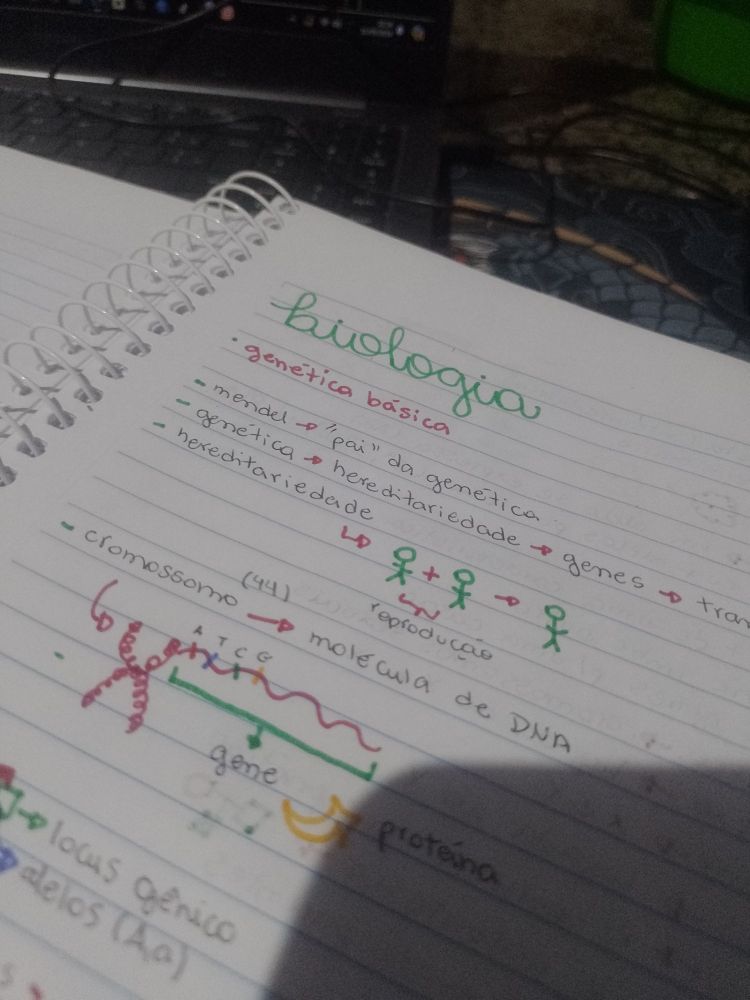 biologia
• genética básica
- mendel → "pai" da genética
- genética → hereditariedade → genes → tran
- hereditariedade
reprodução
- cromossomo (44) → molécula de DNA
A T C G
gene
proteína
→ locus gênico
alelos (A,a)